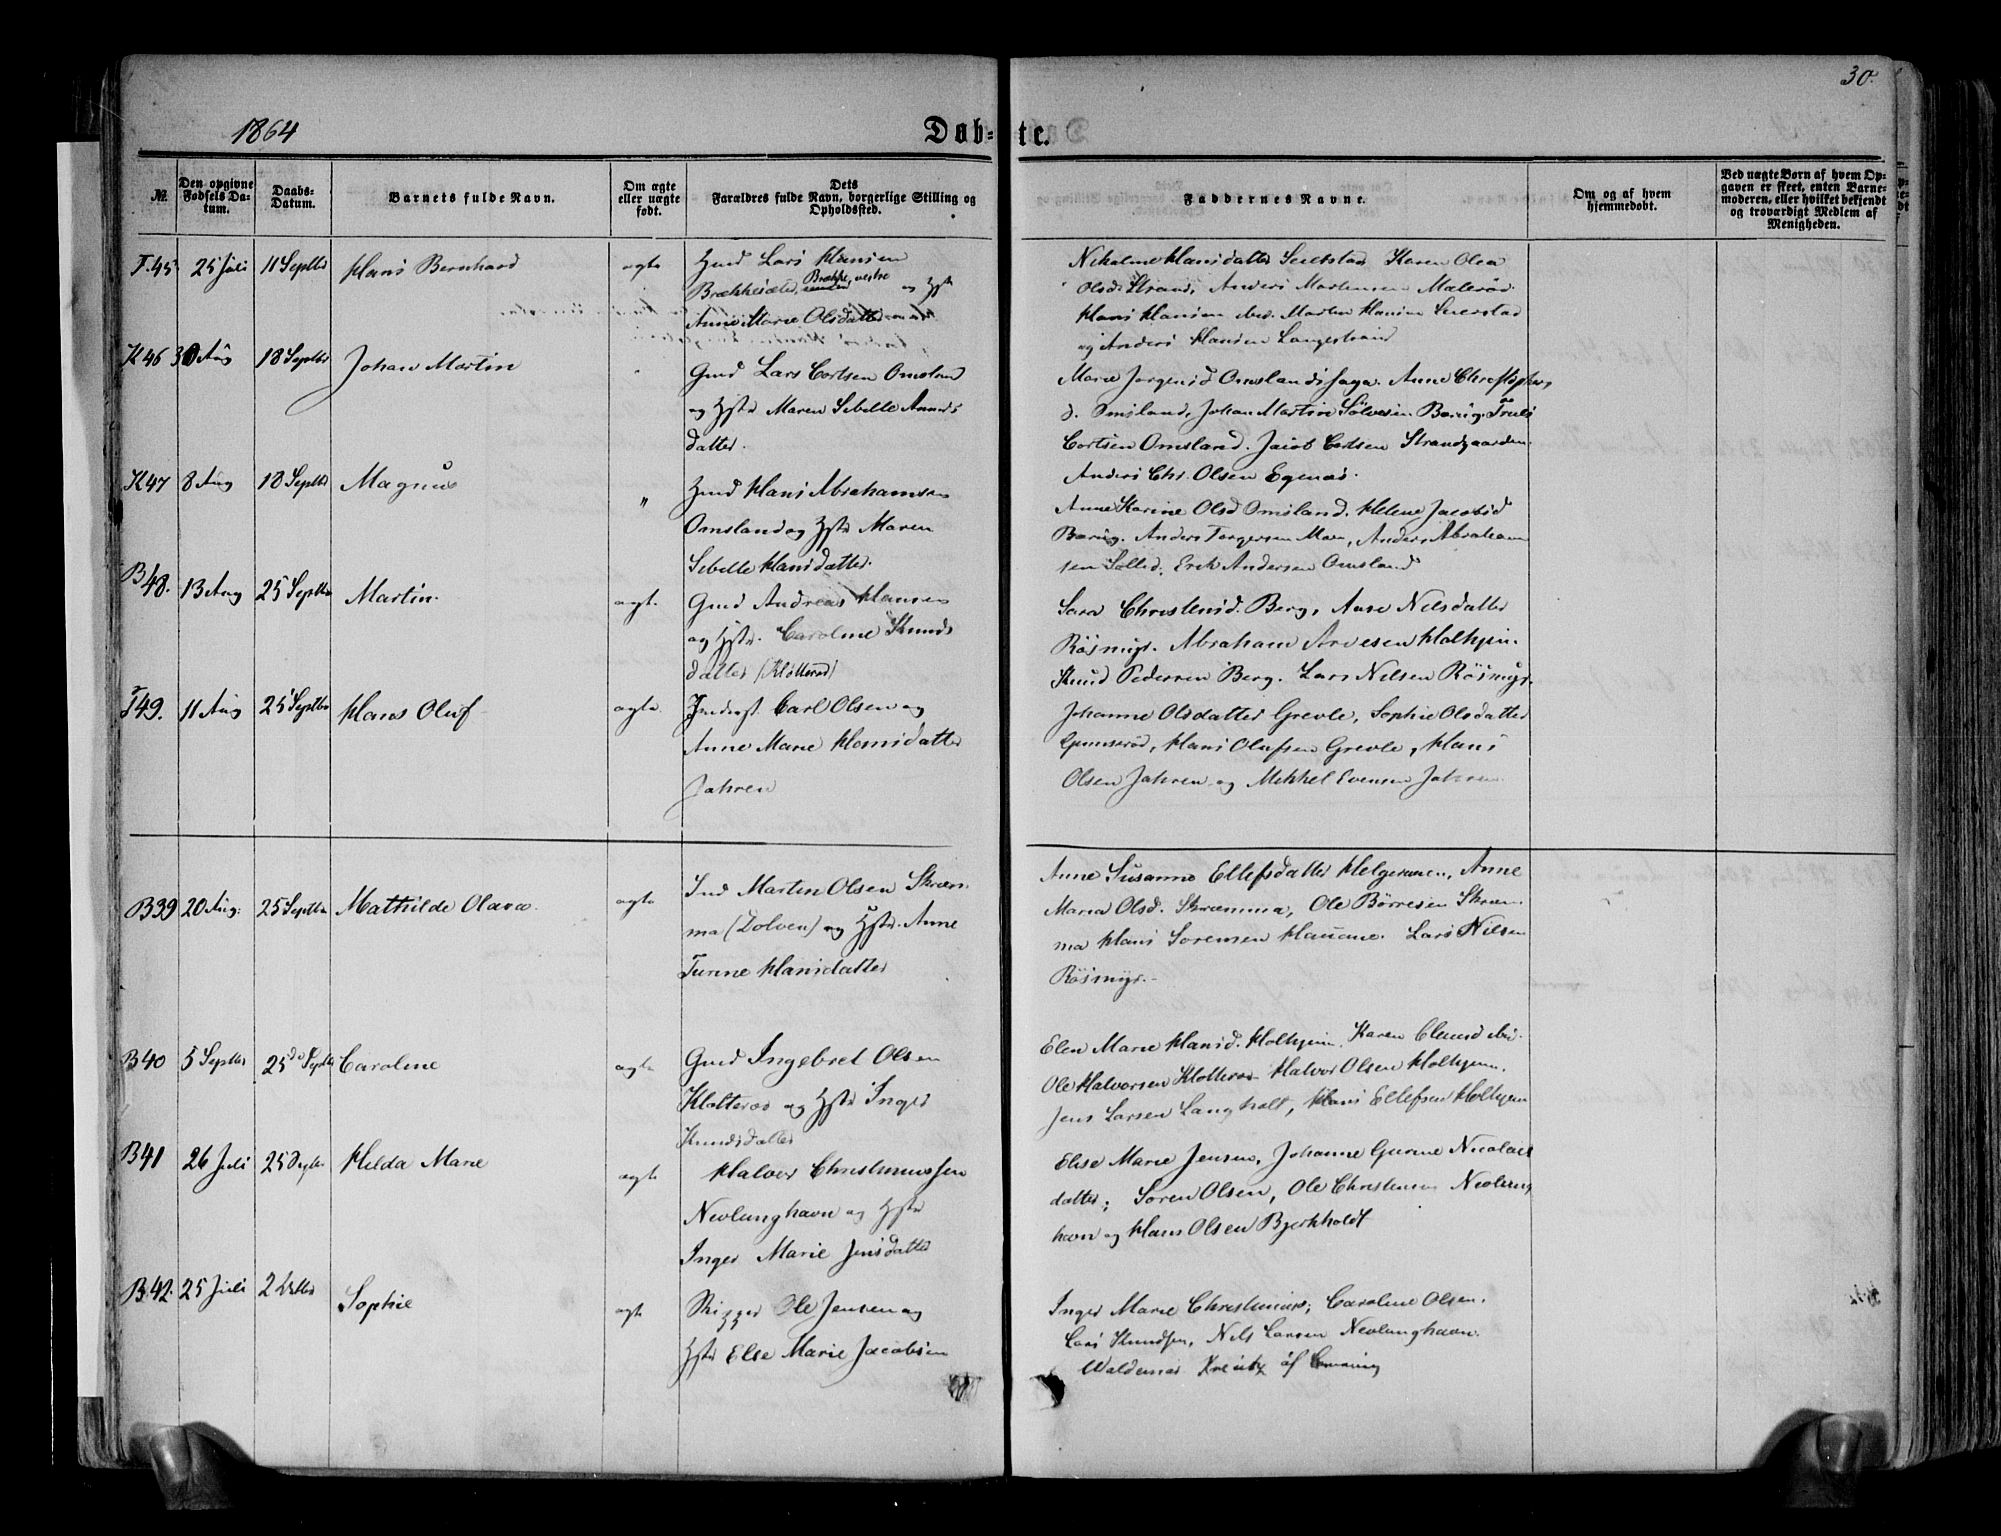 30.
1864
Døb-
te.
№.
Den opgivne Fødsels Datum.
Daabs-Datum.
Barnets fulde Navn.
Om ægte eller uægte født.
Dets Forældres fulde Navn, borgerlige Stilling og Opholdssted.
Faddernes Navne.
Om og af hvem hjemmedøbt.
Ved uægte Børn af hvem Opgaven er skeet, enten Barnemoderen, eller hvilket bekjendt og troværdigt Medlem af Menigheden.
F.45 25 Juli 11 Septbr Hans Bernhard ægte
Gmd Lars Hansen
Brække, vestre og Hst
Anne Marie Olsdatter
Nikoline Hansdatter Seierstad Karen Olea
Olsd. Strand, Anders Mortensen Malerød
Hans Hansen ibd. Morten Hansen Seierstad
og Anders Hansen Langestrand
K46 30 Aug 18 Septbr Johan Martin "
Gmd Lars Cortsen Omsland
og Hstr Maren Sibelle Anders
datter.
Maria Jørgensd Omslandsaga. Anne Christophers
d. Omsland, Johan Martin Sölvesen Barug. Truls
Cortsen Omsland. Jacob Cortsen Strandgaarden
Anders Chr. Olsen Egenæs.
K47 8 Aug 18 Septbr Magnus "
Gmd Hans Abrahamsen
Omsland og Hstr Maren
Sibelle Hansdatter.
Anne Karine Olsd Omsland. Helene Jacobsd
Barug. Anders Torgersen Moen, Anders Abraham
sen Sollid, Erik Andersen Omsland
B48. 13 Aug 25 Septbr Martin. ægte
Gmd Andreas Hansen
og Hstr. Caroline Knuds
datter (Kløtterød)
Sara Christensd. Berg, Anne Nilsdatter
Røsmyr. Abraham Arvesen Holhjem.
Knud Pedersen Berg. Lars Nilsen Røsmyr.
F49. 11 Aug 25 Septbr Hans Oluf ægte
Inderst. Carl Olsen og
Anne Marie Hansdatter
Jahren
Johanne Olsdatter Grevle, Sophie Olsdatter
Gunnerød, Hans Olufsen Grevle, Hans
Olsen Jahren og Mikkel Evensen Jahren
B39 20 Aug. 25 Septbr Mathilde Olava ægte
Ind Martin Olsen Skræm
ma (Dolven) og Hstr. Anne
Turine Hansdatter
Anne Susanne Ellefsdatter Helgeroaen, Anne
Maria Olsd. Skræmma, Ole Børresen Skræm
ma Hans Sorensen Hauane. Lars Nilsen
Røsmyr.
B40 5 Septbr 25de Septbr Caroline ægte
Gmd Ingebret Olsen
Kløtterød og Hstr Inger
Knudsdatter
Elen Marie Hansd. Holhjem, Karen ibd.
Ole Halvorsen Kløtterød Halvor Olsen Holhjem.
Jens Larsen Langholt, Hans Ellefsen Holhjem
B41 26 Juli 25 Septbr Hilda Marie ægte
Halvor Christenussen
Nevlunghavn og Hstr
Inger Marie Jensdatter
Elise Marie Jensen, Johanne Gurine Nicolais
datter, Søren Olsen, Ole Christensen Nevlung
havn og Hans Olsen Bjerkholdt
B42. 25 Juli 2 Octbr Sophie ægte
Skipper Ole Jensen og
Hstr Else Marie Jacobsen
Inger Marie Christenius, Caroline Olsen.
Lars Knudsen, Nils Larsen Nevlunghavn.
Waldemar Kreutz af